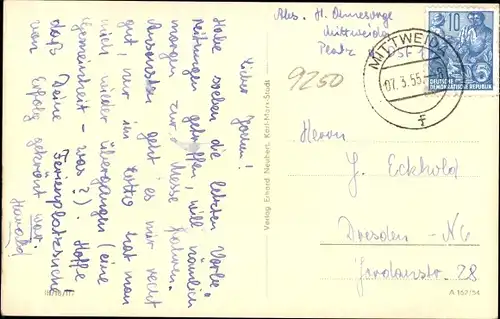 Lieber Jochen!
Habe soeben die letzten Vorbe-
reitungen getroffen, will nämlich
morgen zur Messe fahren.
Ansonsten geht es mir recht
gut, nur im Lotto hat man
mich wieder übergangen (eine
Gemeinheit - was?). Hoffe
daß Deine Ferienplatzsuche
von Erfolg gekrönt war.
Abs. H. Annesorge
Mittweida
Platz DSF 1
9250
10
5
DEUTSCHE
DEMOKRATISCHE REPUBLIK
MITTWEIDA
07.3.55
f
Herrn
J. Eckhold
Dresden - N6
Jordanstr. 28
Verlag Erhard Neubert, Karl-Marx-Stadt
A 152/54